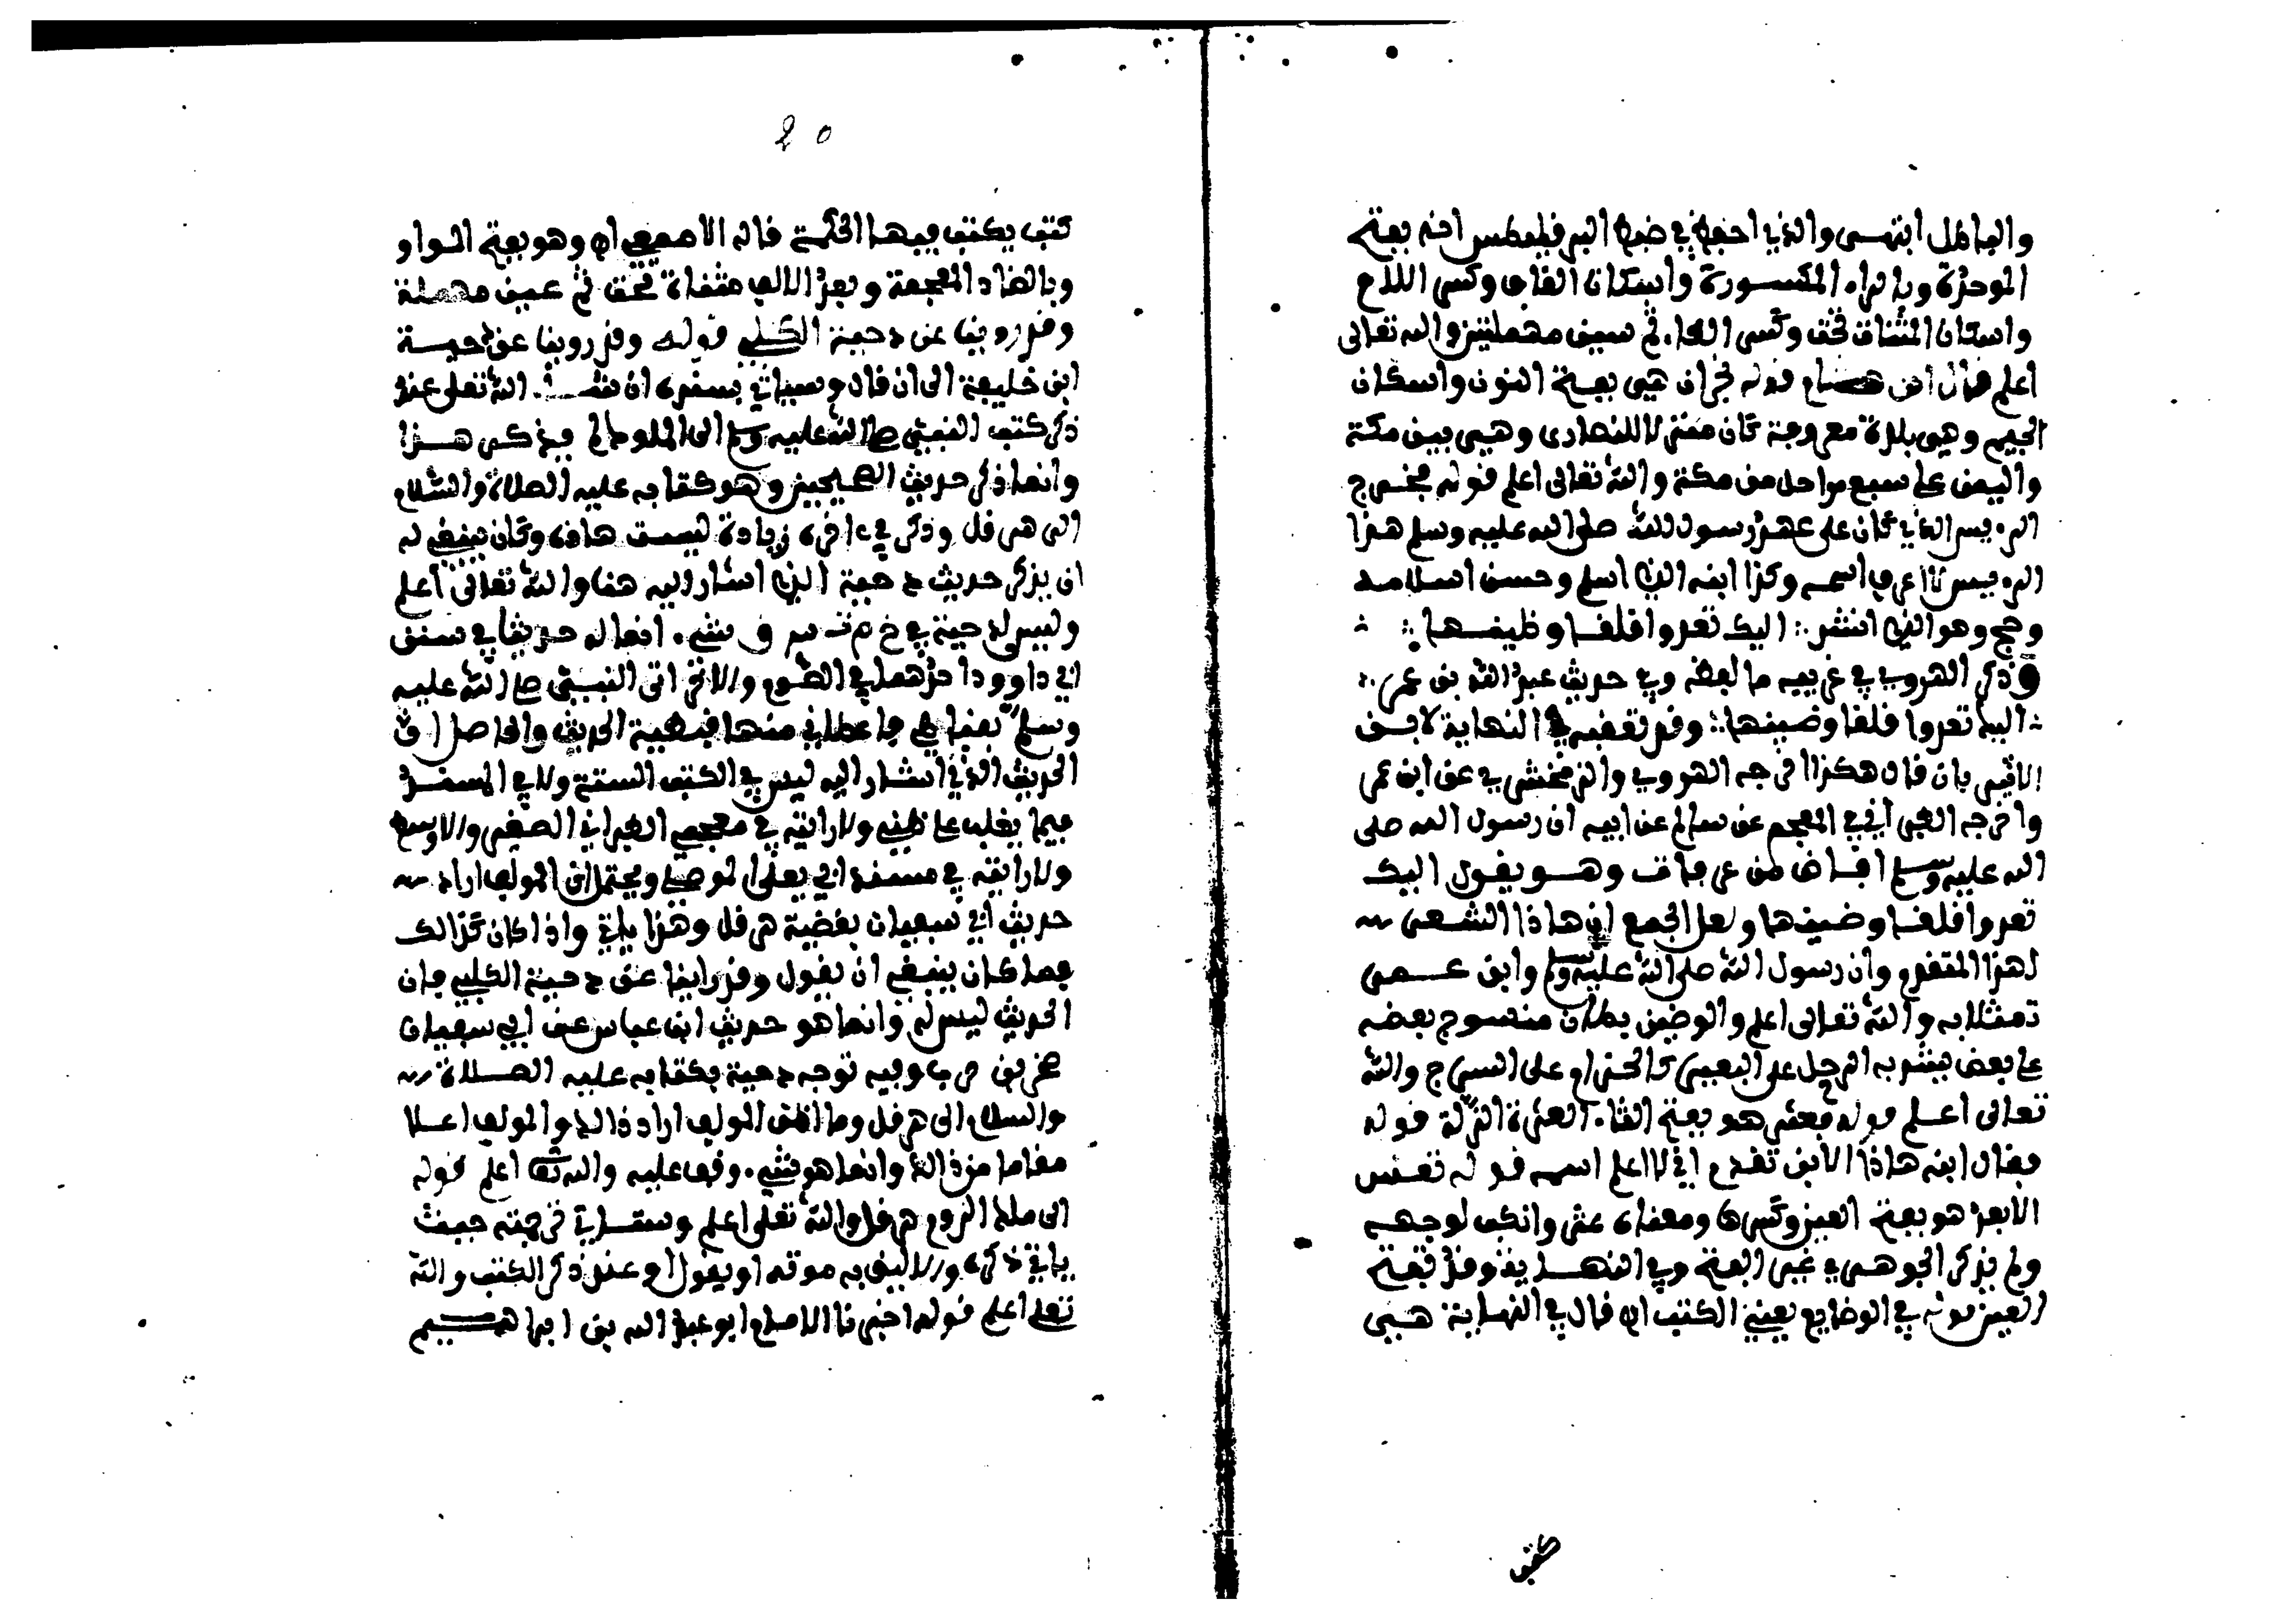 والباطل انتهى والذي احفظه في ضبط البرقليطس انه بفتح
الموحدة وبالراء المكسورة واسكان القاف وكسر اللام
واسكان المثناة تحت وكسر الطاء ثم سين مهملتين والله تعالى
اعلم قال ابن هشام قوله نجران هي بفتح النون واسكان
الجيم وهي بلدة معروفة كان منزلا للنصارى وهي بين مكة
واليمن على سبع مراحل من مكة والله تعالى اعلم قوله فخرج
الرءيس الذي كان على عهد رسول الله صلى الله عليه وسلم هذا
الرءيس لا اعرف اسمه وكذا ابنه الذي اسلم وحسن اسلامه
وحج وهو الذي انشد اليك تعدوا قلقا وظيفها
وذكر الهروي في غريبه ما لفظه وفي حديث عبد الله بن عمر
اليك تعدوا قلقا وضينها وقد تعقبه في النهاية لابن
الاثير بان قال هكذا اخرجه الهروي والزمخشري عن ابن عمر
واخرجه الطبراني في المعجم عن سالم عن ابيه ان رسول الله صلى
الله عليه وسلم افاض من عرفات وهو يقول اليك
تعدوا قلقا وضينها ولعل الجمع ان هاذا الشعر
لهذا المتقدم وان رسول الله صلى الله عليه وسلم وابن عمر
تمثلا به والله تعالى اعلم والوضين بطان منسوج بعضه
على بعض يشد به الرحل على البعير كالحزام على السرج والله
تعالى اعلم قوله فعثر هو بفتح الثاء العثرة الزلة قوله
فقال ابنه هاذا الابن تقدم اني لا اعلم اسمه قوله تعس
الابعد هو بفتح العين وكسرها ومعناه عثر وانكب لوجهه
ولم يذكر الجوهري غير الفتح وفي النهاية وقد تفتح
العين قوله في الوضايع يعني الكتب اه قال في النهاية هي
كتب
20
كتب يكتب فيها الحكمة قاله الاصمعي اه وهو بفتح الواو
وبالضاد المعجمة وبعد الالف مثناة تحت ثم عين مهملة
وقد روينا عن دحية الكلبي قوله وقد روينا عن دحية
ابن خليفة الى ان قال وسياتي بسنده ان شا الله تعلى عند
ذكر كتب النبي صلى الله عليه وسلم الى الملوك لم يذكر هذا
وانما ذكر حديث الصحيحين وهو كتابه عليه الصلاة والسلام
الى هرقل وذكر في ءاخره زيادة ليست هاذه وكان ينبغي له
ان يذكر حديث دحية الذي اشار اليه هنا والله تعالى اعلم
وليس لدحية في خ م ت س ق شيء انما له حديثا في سنن
ابي داوود احدهما في الصوم والاخر اتى النبي صلى الله عليه
وسلم بقباطي فاعطاني منها قبطية الحديث والحاصل ان
الحديث الذي اشار اليه ليس في الكتب الستة ولا في المسند
فيما يغلب على ظني ولا رايته في معجمي الطبراني الصغير والاوسط
ولا رايته في مسند ابي يعلى الموصلي ويحتمل ان المولف اراد
حديث ابي سفيان بقضية هرقل وهذا ياتي واذا كان كذالك
فما كان ينبغي ان يقول وقد روينا عن دحية الكلبي فان
الحديث ليس له وانما هو حديث ابن عباس عن ابي سفيان
صخر بن حرب وفيه توجه دحية بكتابه عليه الصلاة
والسلام الى هرقل وما اظن المولف اراد ذالك والمولف اعلا
مقاما من ذالك وانما هو شيء وقف عليه والله تعا اعلم قوله
الى ملك الروم هرقل والله تعلى اعلم وستاتي ترجمته حيث
ياتي ذكره والاليق به موته او يقول او عند ذكر الكتب والله
تعلى اعلم قوله اخبرنا الامام ابو عبد الله بن ابراهيم